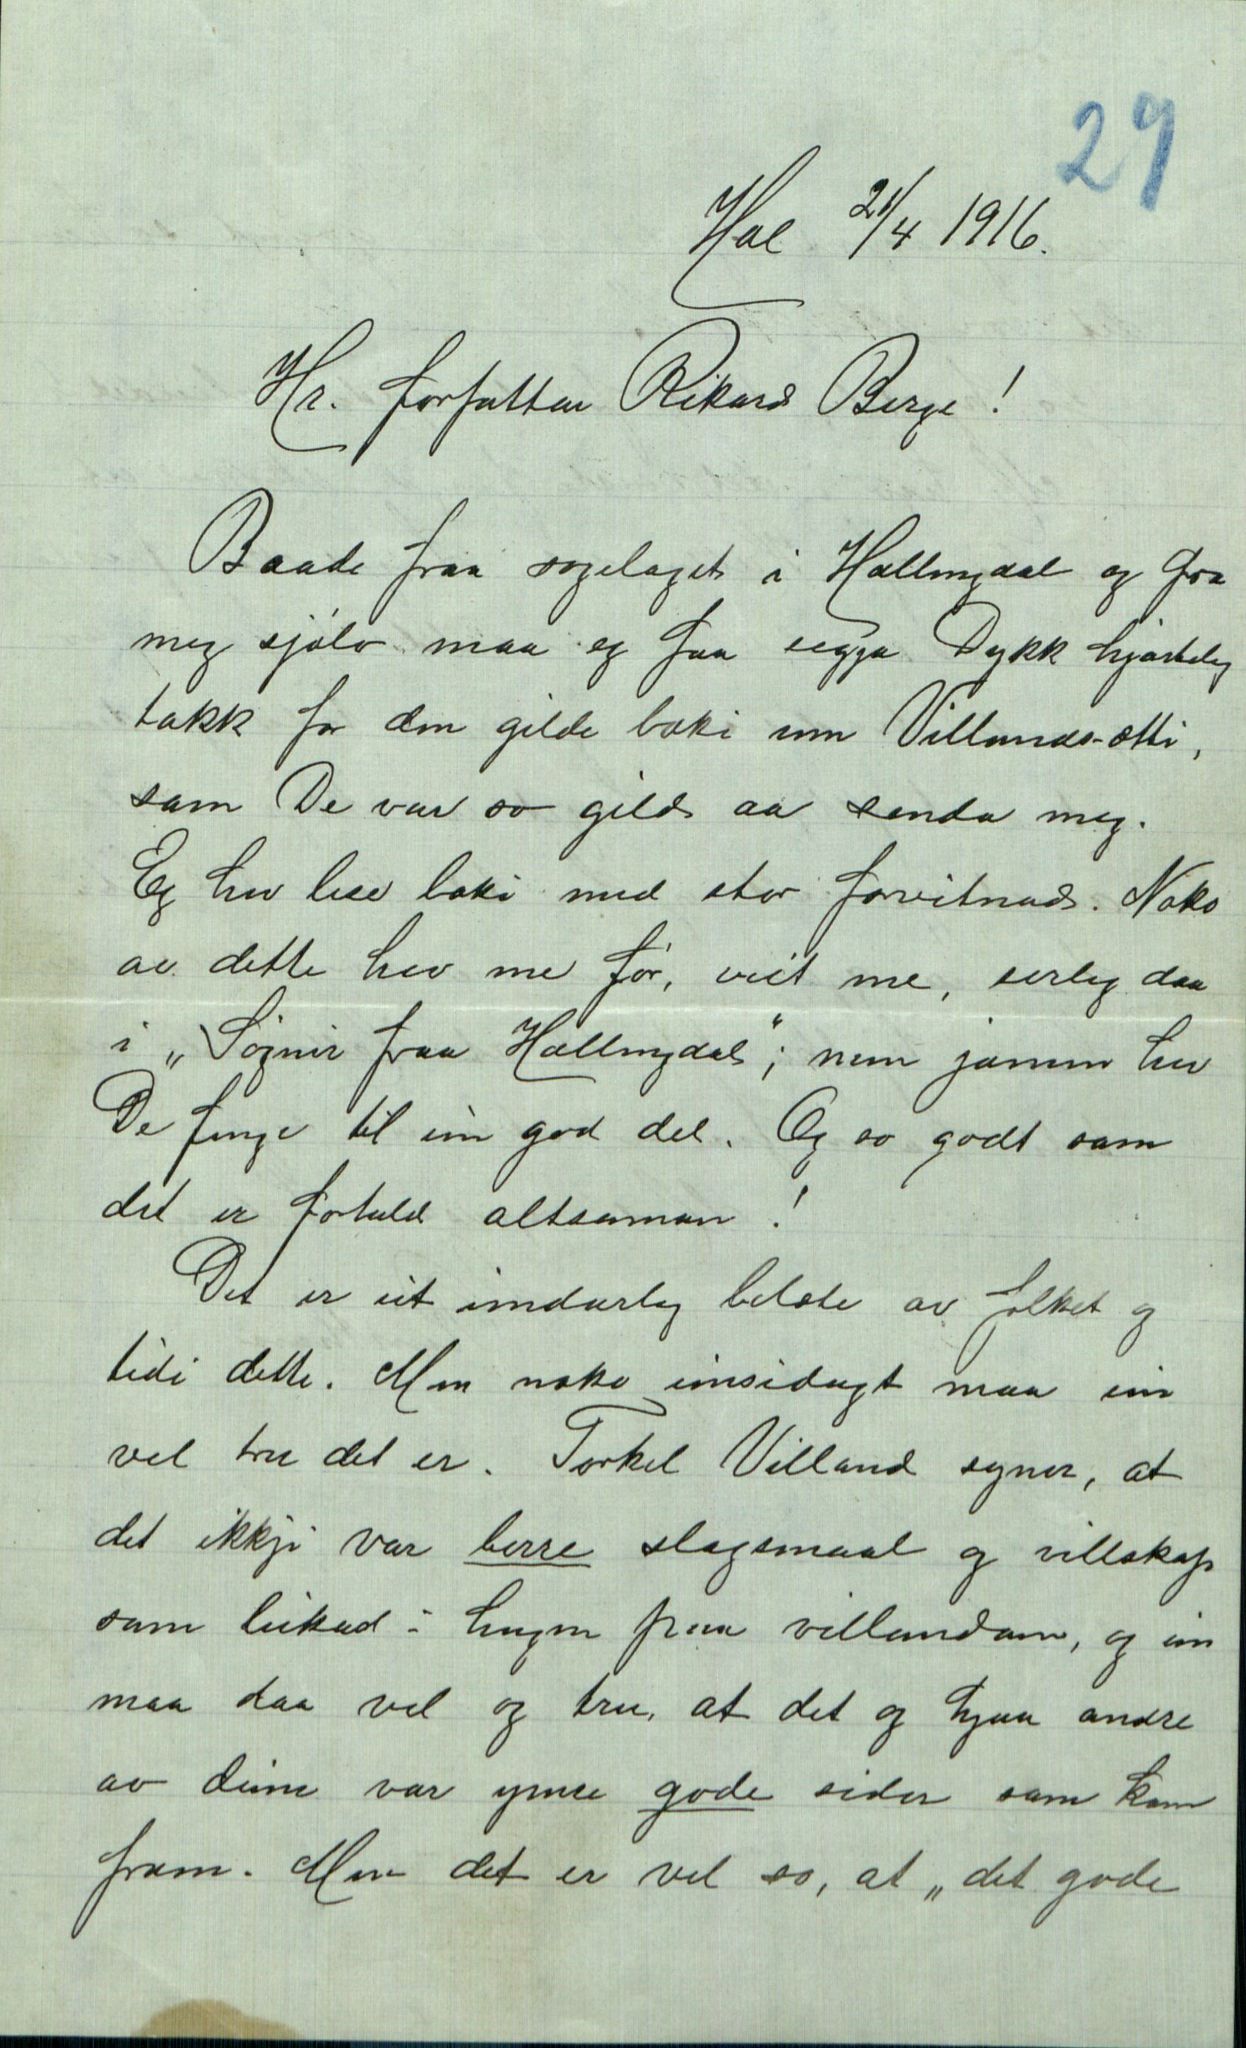 29
Hol 21/4 1916.
Hr. forfattar Rikard Berge!
Baade fraa sogelaget i Hallingdal og fra
meg sjølv maa eg faa segja Dykk hjarteleg
takk for den gilde boki um Villands-ætti,
som De var so gild aa senda meg.
Eg hev lese boki med stor forvitnad. Noko
av dette hev me før, veit me, serleg daa
i „Søgnir fraa Hallingdal“; men jamen hev
De funge til ein god del. Og so godt som
det er fortald altsaman!
Det er eit underleg belæte av folket og
tidi dette. Men noko einsidugt maa ein
vel tru det er. Torkel Villand syner, at
det ikkji var berre slagsmaal og villskap
som leikad i hugen paa villandane, og ein
maa daa vel og tru, at det og hjaa andre
av deim var ymse gode sider som kom
fram. Men det er vel so, at „det gode